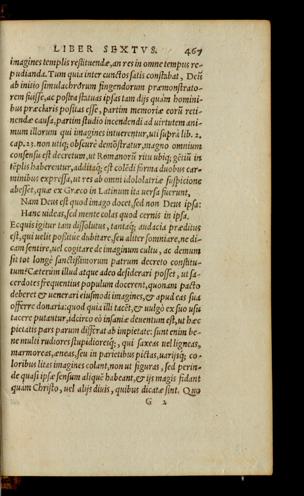 LIBER SEXTVS. 467
imagines templis restituendæ, an res in omne tempus re-
pudianda. Tum quia inter cunctos satis constabat, Deū
ab initio simulachrorum fingendorum præmonstrato-
rem fuisse, ac postea statuas ipsas tam dijs quàm homini-
bus præclaris positas esse, partim memoriæ eorū reti-
nendæ causa, partim studio incendendi ad uirtutem ani-
mum illorum qui imagines intuerentur, uti suprà lib. 2.
cap. 23. non utiq; obscurè demōstratur, magno omnium
consensu est decretum, ut Romanorū ritu ubiq; gētiū in
tēplis haberentur, additaq; est colēdi forma duobus car-
minibus expressa, ut res ab omni idololatriæ suspicione
abesset, quæ ex Græco in Latinum ita uersa fuerunt,
Nam Deus est quod imago docet, sed non Deus ipsa:
Hanc uideas, sed mente colas quod cernis in ipsa.
Ecquis igitur tam dissolutus, tantaq; audacia præditus
est, qui uelit positue dubitare, seu aliter somniare, ne di-
cam sentire, uel cogitare de imaginum cultu, ac demum
sit tot longè sanctissimorum patrum decreto constitu-
tum? Cæterùm illud atque adeo desiderari posset, ut sa-
cerdotes frequentius populum docerent, quonam pacto
deberet & uenerari eiusmodi imagines, & apud eas sua
offerre donaria: quod quia illi tacēt, & uulgò ex suo usu
tacere putantur, idcirco eò insaniæ deuentum est, ut hæc
pietatis pars parum differat ab impietate: sunt enim be-
ne multi rudiores stupidioresq;, qui saxeas uel ligneas,
marmoreas, æneas, seu in parietibus pictas, uarijsq; co-
loribus litas imagines colant, non ut figuras, sed perin-
de quasi ipsæ sensum aliquē habeant, & ijs magis fidant
quàm Christo, uel alijs diuis, quibus dicatæ sint. Quo
G 2